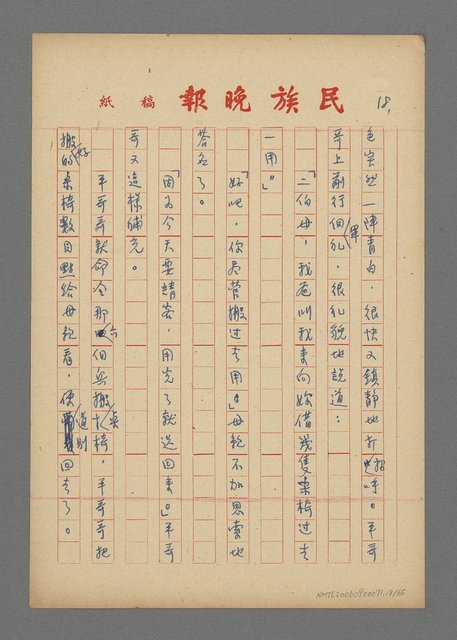 民族晚報 稿紙
18.
色突然一陣青白,很快又鎮靜地打招呼。平哥
哥上前行個軍礼,很礼貌地說道:
「二伯母,我爸叫我来向妳借幾隻桌椅过去
一用。」
「好吧,你尽管搬过去用。」母親不加思索地
答应了。
「因为今天要請客,用完了就送回来。」平哥
哥又這樣補充。
平哥哥就命令那個兵搬桌椅,平哥哥把
搬好的桌椅數目點給母親看,便道別回去了。
NMTL20060900071.18/65